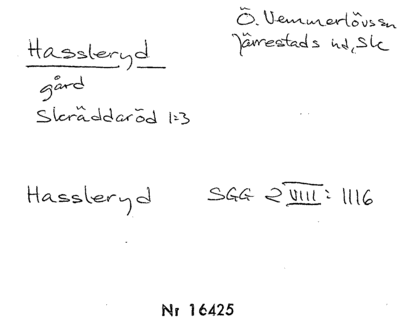 Hassleryd
gård
Skräddaröd 1:3
Ö. Vemmerlövs sn
Järrestads hd, Sk
Hassleryd SGG 2 VIII: 1116
Nr 16425